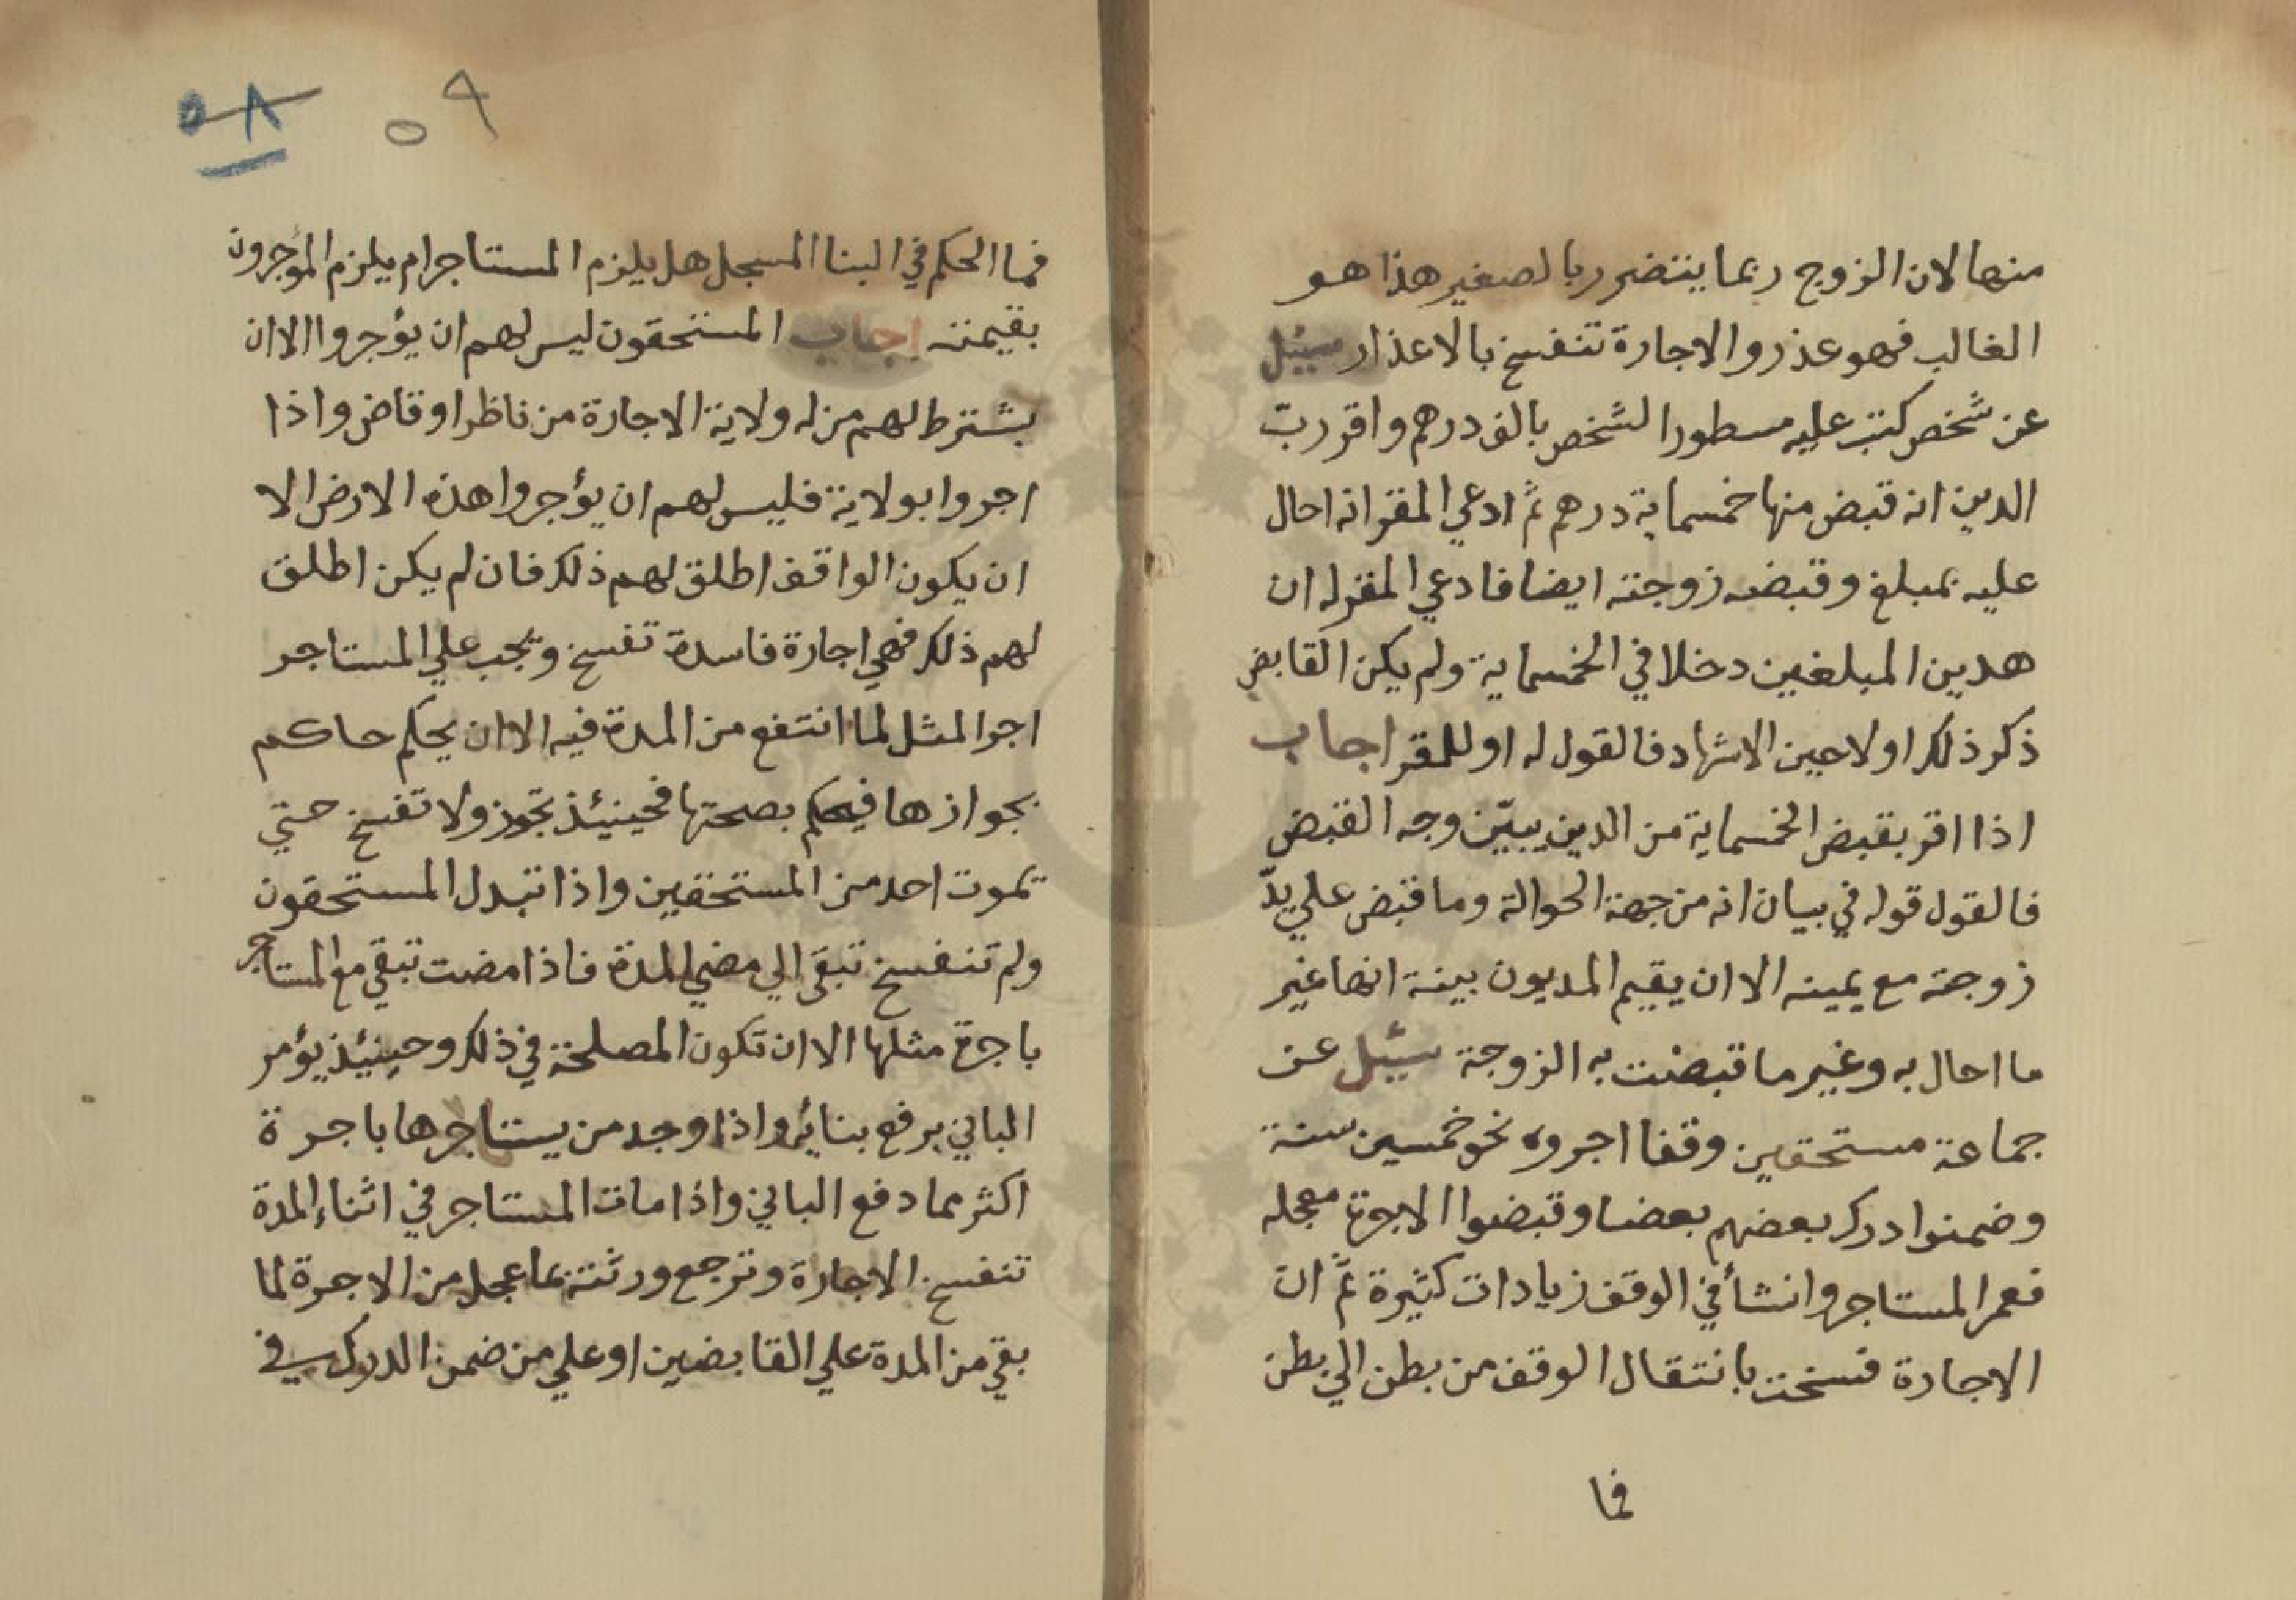 منها لان الزوج ربما ينتضرر بالصغير هذا هو
الغالب فهو عذر والاجارة تنفسخ بالاعذار سيئل
عن شخص كتب عليه مسطورا لشخص بالف درهم واقر رب
الدين انه قبض منها خمسماية درهم ثم ادعي المقر انه احال
عليه بمبلغ وقبضه زوجته ايضا فادعي المقرله ان
هدين المبلغين دخلا في الخمسماية ولم يكن القابض
ذكر ذلك اولا حين الاشهاد فالقول له او للمقر اجاب
اذا اقر بقبض الخمسماية من الدين يبيّن وجه القبض
فالقول قوله في بيان انه من جهة الحوالة وما قبض علي يدّ
زوجة مع يمينه الا ان يقيم المديون بينة انها غير
ما احال به وغير ما قبضت به الزوجة سيئل عن
جماعة مستحقين وقفا اجروه نحو خمسين سنة
وضمنوا درك بعضهم بعضا وقبضوا الاجرة معجله
فعمر المستاجر وانشأ في الوقف زيادات كثيرة ثم ان
الاجارة فسخت بانتقال الوقف من بطن الي بطن
فما
٥٨ ٥٩
فما الحكم في البنا المسجل هل يلزم المستاجر ام يلزم المؤجرون
بقيمته اجاب المستحقون ليس لهم ان يؤجروا الا ان
يشترط لهم من له ولاية الاجارة من ناظر او قاض واذا
اجروا بولاية فليس لهم ان يؤجروا هذه الارض الا
ان يكون الواقف اطلق لهم ذلك فان لم يكن اطلق
لهم ذلك فهي اجارة فاسدة تفسخ ويجب علي المستاجر
اجر المثل لما انتفع من المدة فيه الا ان يحكم حاكم
بجوازها فيحكم بصحتها فحينيئذ تجوز ولا تفسخ حتي
يموت احد من المستحقين واذا تبدل المستحقون
ولم تنفسخ تبقي الي مضي المدة فاذا مضت تبقي مع المستاجر
باجرة مثلها الا ان تكون المصلحة في ذلك وحينيئذ يؤمر
الباني برفع بنائه واذا وجد من يستاجرها باجرة
اكثر مما دفع الباني واذا مات المستاجر في اثناء المدة
تنفسخ الاجارة وترجع ورثته بما عجل من الاجرة لما
بقي من المدة علي القابضين او علي من ضمن الدرك في